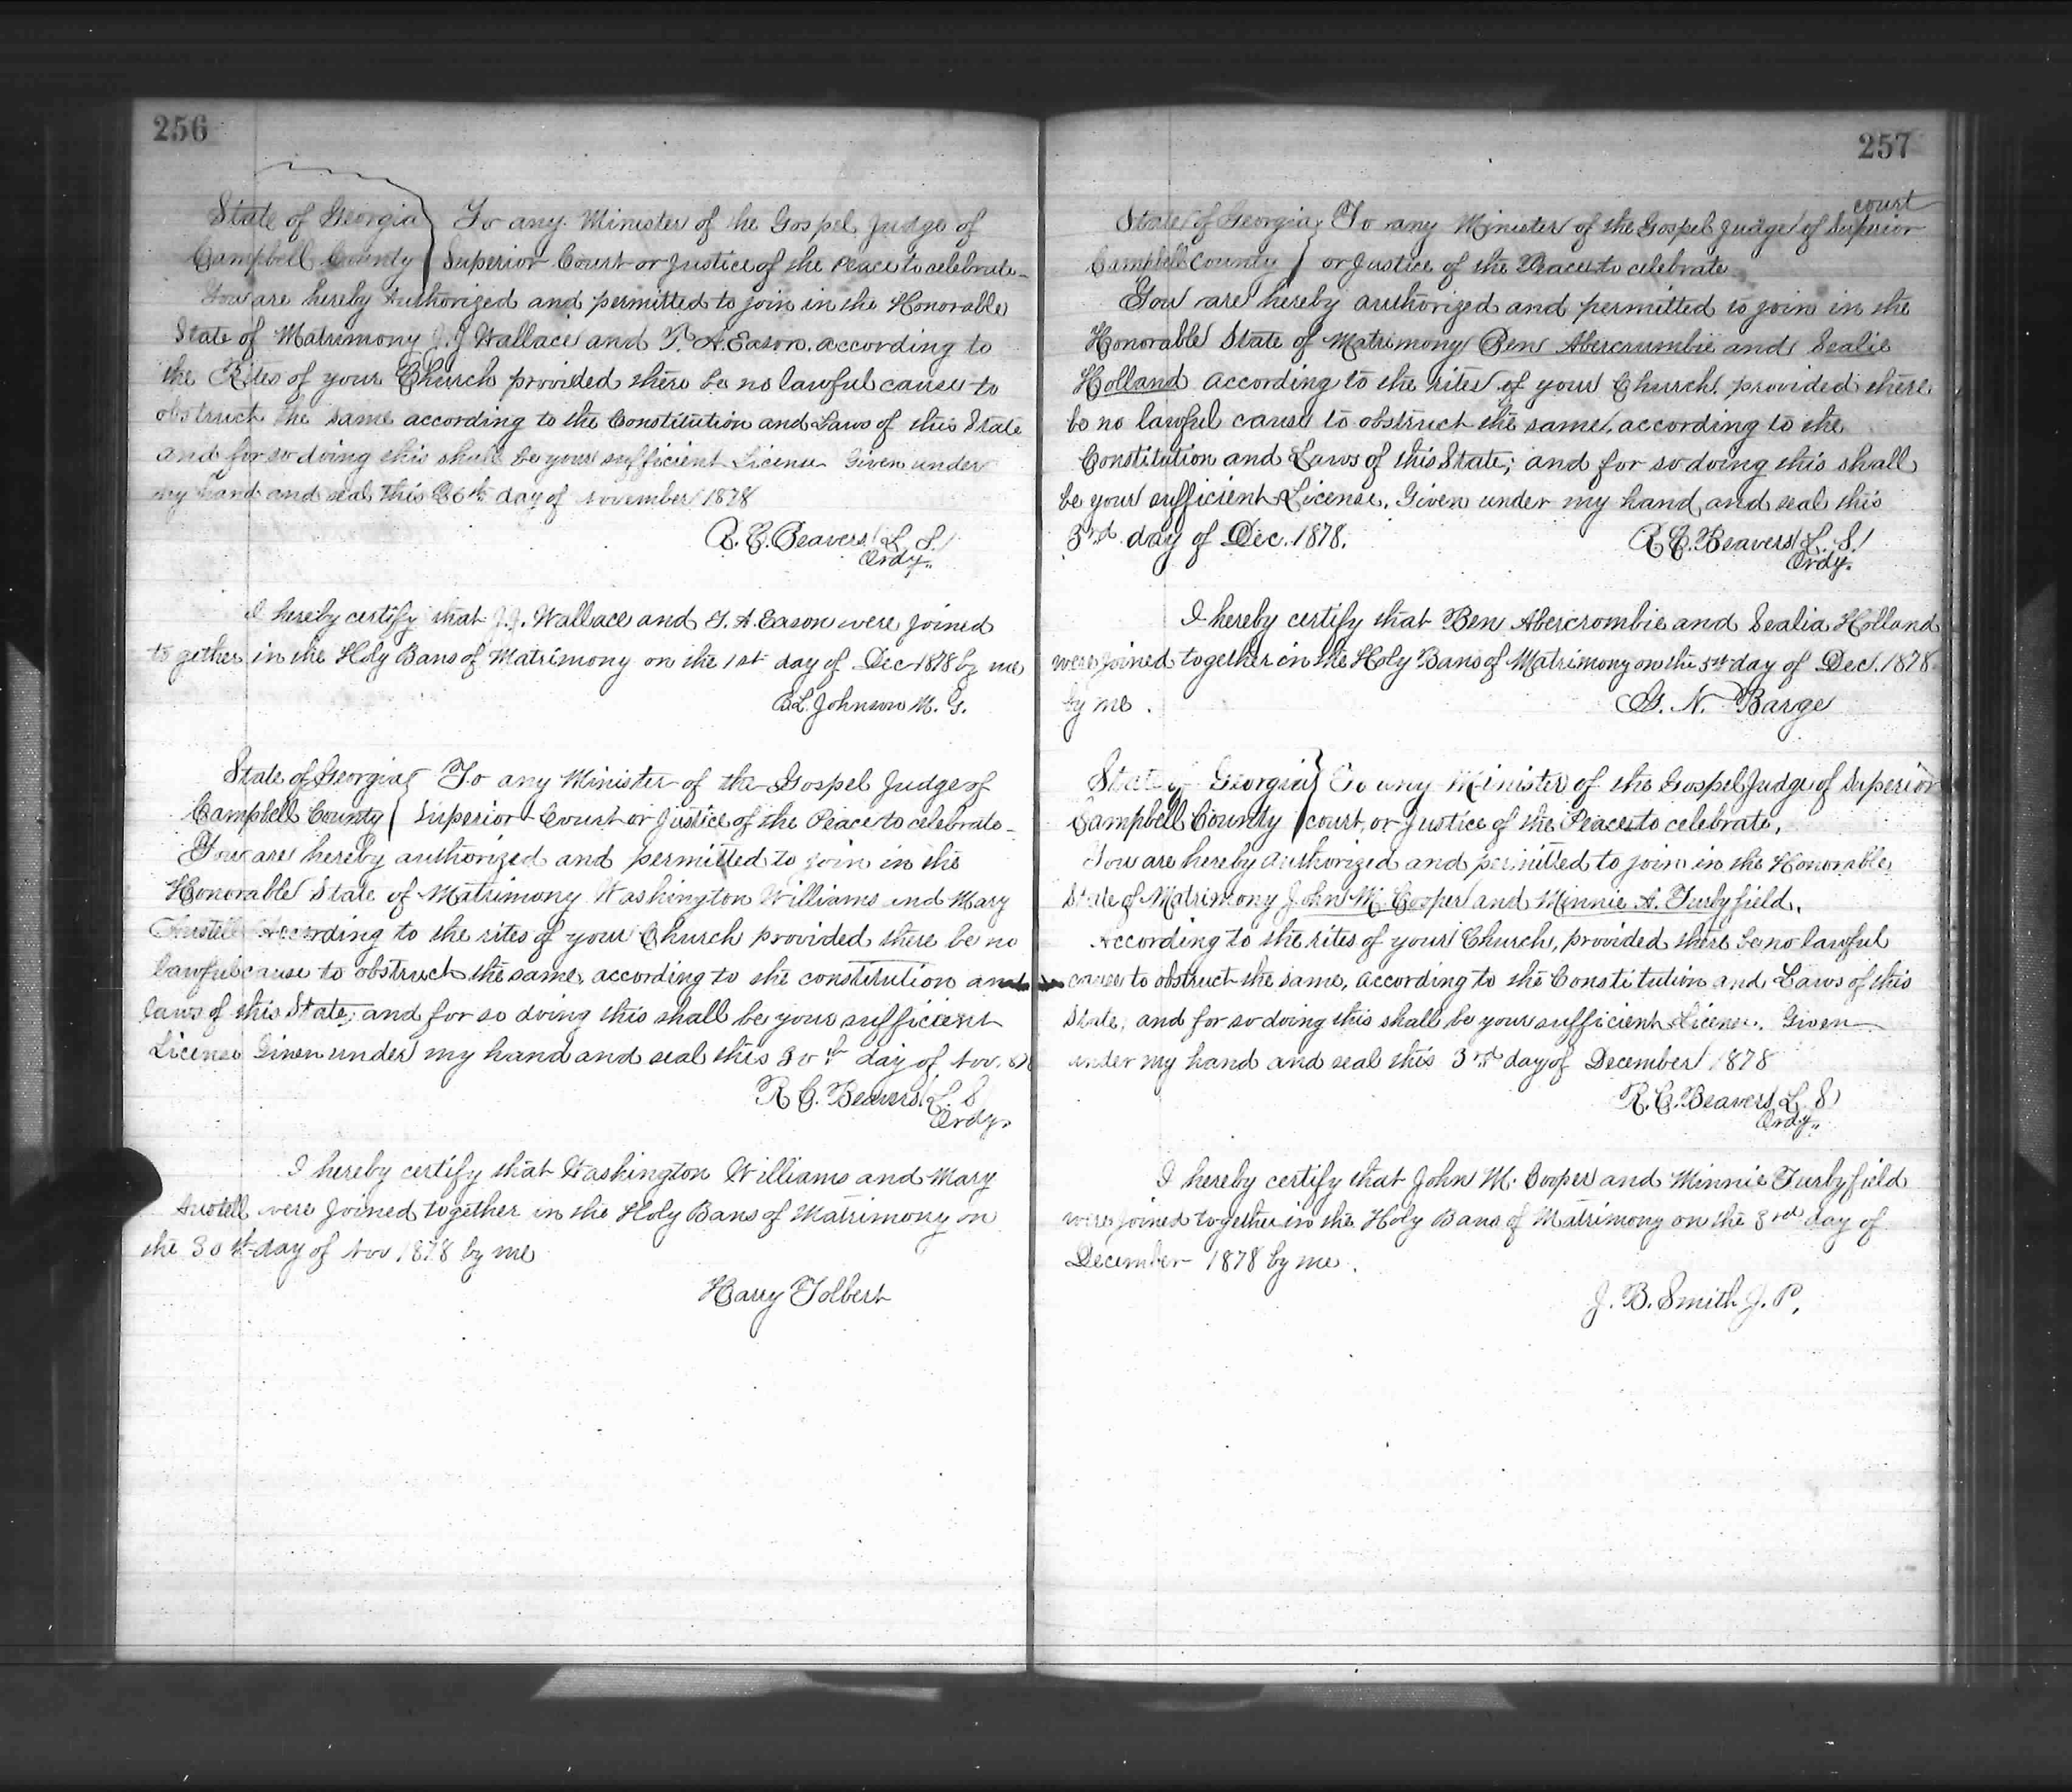 256
State of Georgia To any Minister of the Gospel Judge of
Campbell County Superior Court or Justice of the Peace to celebrate
You are hereby Authorized and permitted to join in the Honorable
State of Matrimony J. J. Wallace and T. A. Eason. according to
the Rites of your Church provided there be no lawful cause to
obstruct the same according to the Constitution and Laws of this State
and for so doing this shall be your sufficient License Given under
my hand and seal this 26th day of November 1878
R. C. Beavers L. S.
Ordy.
I hereby certify that J. J. Wallace and T. A. Eason were joined
together in the Holy Bans of Matrimony on the 1st day of Dec 1878 by me
B. L. Johnson M. G.
State of Georgia To any Minister of the Gospel Judge of
Campbell County Superior Court or Justice of the Peace to celebrate
You are hereby authorized and permitted to join in the
Honorable State of Matrimony Washington Williams and Mary
According to the rites of your Church provided there be no
lawful cause to obstruct the same, according to the constitution and
laws of this State; and for so doing this shall be your sufficient
License Given under my hand and seal this 30th day of Nov. 87
R. C. Beavers L. S
Ordy.
I hereby certify that Washington Williams and Mary
were joined together in the Holy Bans of Matrimony on
the 30th day of Nov 1878 by me
Harry Tolbert
257
court
State of Georgia To any Minister of the Gospel Judge of Superior
Campbell County or Justice of the Peace to celebrate
You are hereby authorized and permitted to join in the
Honorable State of Matrimony Ben Abercrumbie and Sealie
Holland according to the rites of your Church. provided there
be no lawful cause to obstruct the same, according to the
Constitution and Laws of this State; and for so doing this shall
be your sufficient License. Given under my hand and seal this
3rd day of Dec. 1878. R. C. Beavers L. S.
Ordy.
I hereby certify that Ben Abercrombie and Sealia Holland
were joined together in the Holy Bans of Matrimony on the 5th day of Dec. 1878
by me. G. N. Barge
State of Georgia To any Minister of the Gospel Judge of Superior
Campbell County court, or Justice of the Peace to celebrate,
You are hereby Authorized and permitted to join in the Honorable
State of Matrimony John M. Cooper and Minnie A. Turbyfield.
According to the rites of your Church, provided there be no lawful
cause to obstruct the same, according to the Constitution and Laws of this
State, and for so doing this shall be your sufficient License. Given
under my hand and seal this 3rd day of December 1878
R. C. Beavers L. S
Ordy.
I hereby certify that John M. Cooper and Minnie Turbyfield
were joined together in the Holy Bans of Matrimony on the 3rd day of
December 1878 by me.
J. B. Smith J. P.